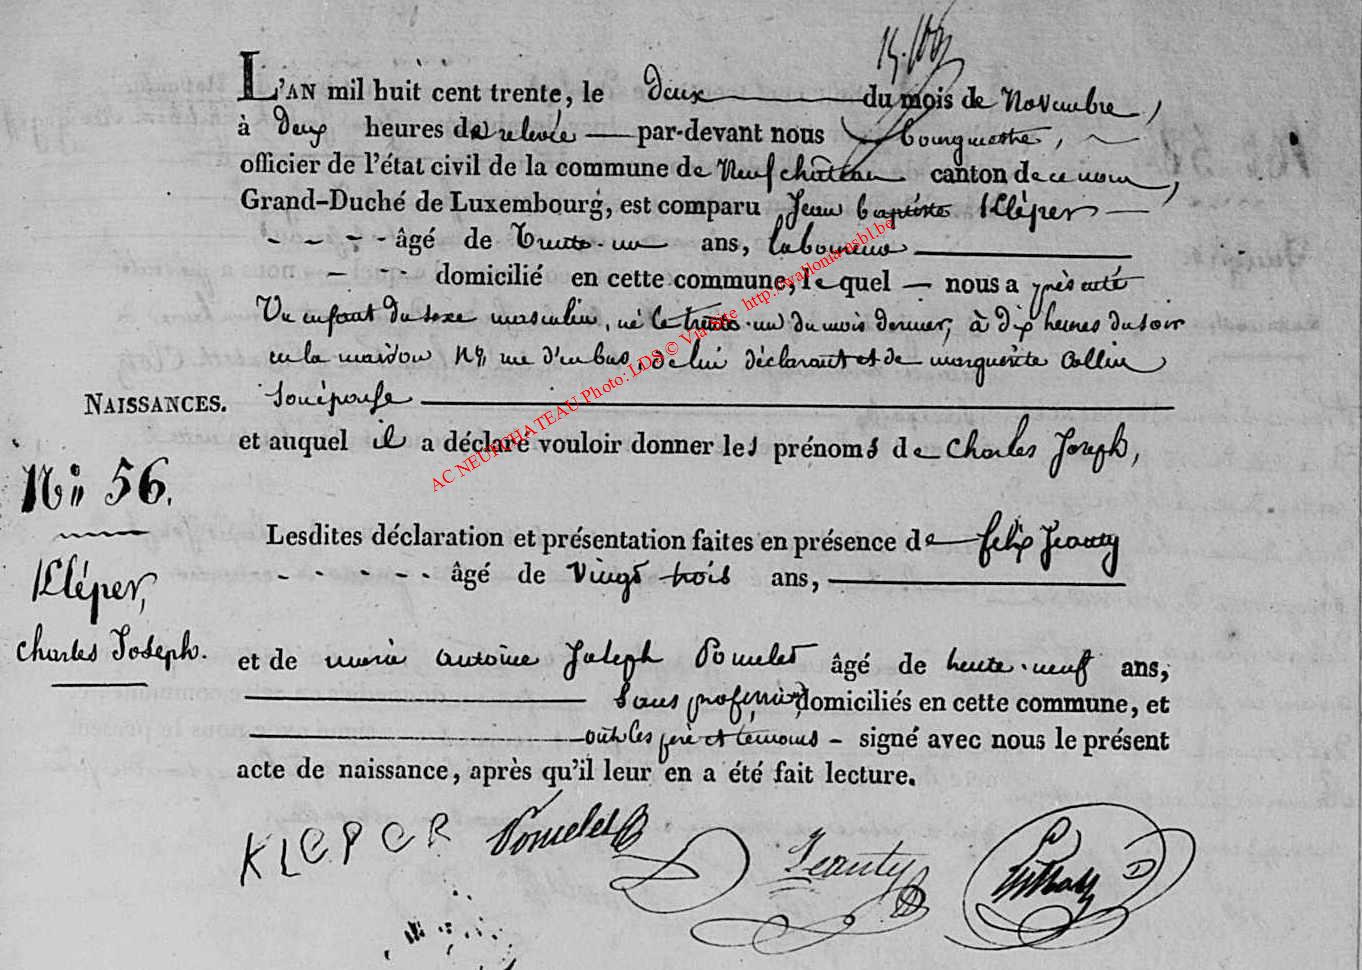 L'AN mil huit cent trente, le deux du mois de Novembre,
à deux heures de relevée par-devant nous bourgmestre,
officier de l'état civil de la commune de Neufchâteau canton de ce nom,
Grand-Duché de Luxembourg, est comparu Jean baptiste Kléper
âgé de trente-un ans, laboureur
domicilié en cette commune, lequel nous a présenté
Un enfant du sexe masculin, né le trente-un du mois dernier, à dix heures du soir
en la maison rue d'en bas, de lui déclarant et de marguerite Collin
son épouse
NAISSANCES.
et auquel il a déclaré vouloir donner les prénoms de Charles Joseph,
Nº 56.
Lesdites déclaration et présentation faites en présence de felix Jeanty
Kléper,
âgé de vingt trois ans,
Charles Joseph.
et de marie antoine Joseph Pomelet âgé de trente-neuf ans,
sans profession domiciliés en cette commune, et
ont les père et témoins - signé avec nous le présent
acte de naissance, après qu'il leur en a été fait lecture.
KLEPER Pomelet Jeanty
AC NEUFCHATEAU Photo: LDS © Via site http://wallonia-asbl.be